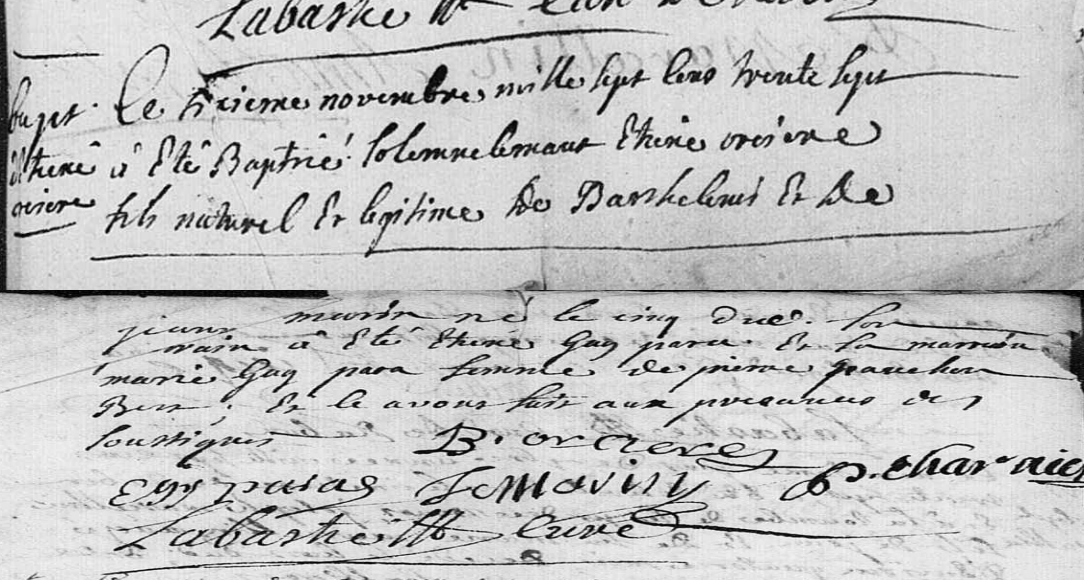 Labastie
bapt. Le sixieme novembre mille sept cens trente sept
d'Etiene à Eté Baptisé solemnelement Etiene orsiere
orsiere fils naturel Et legitime de Barthelemi Et de
jeanne marin né le cinq dud. son
parain à Eté Etiene Gay para Et la marraine
marie Gay para femme de pierre
Et le avons fait aux presances des
soussignés B. orciere
E gay paras J Maviny P. charvnier
Labastie curé